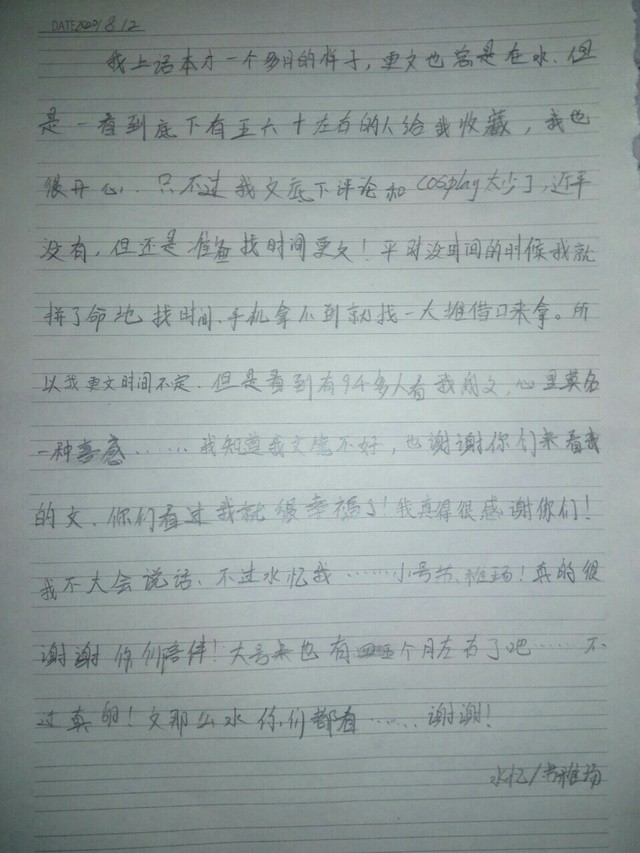 DATE 2020/8.12
我上话本才一个多月的样子，更文也总是在水．但
是一看到底下有五六十左右的人给我收藏，我也
很开心．只不过我文底下评论和cosplay太少了，近乎
没有，但还是准备找时间更文！平时没时间的时候我就
拼了命地找时间、手机拿不到就找一大堆借口来拿。所
以我更文时间不定．但是看到有94多人看我的文，心里莫名
一种喜感……我知道我文笔不好，也谢谢你们来看我
的文、你们看过我就很幸福了！我真得很感谢你们！
我不大会说话、不过水忆我……小号书雅玚！真的很
谢谢你们陪伴！大号来也有五个月左右了吧……不
过真的！文那么水你们都看……谢谢！
水忆/书雅玚